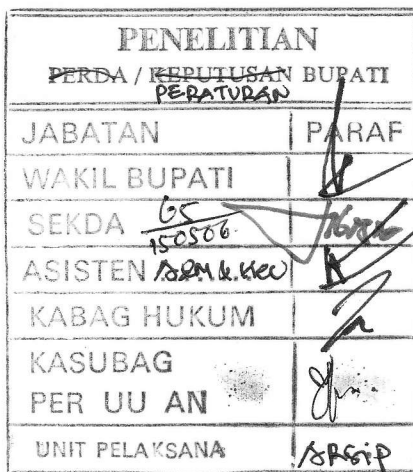 PENELITIAN
PERDA / KEPUTUSAN BUPATI
PERATURAN
JABATAN PARAF
WAKIL BUPATI
SEKDA 65
150506
ASISTEN ADM & KEU
KABAG HUKUM
KASUBAG
PER UU AN
UNIT PELAKSANA ARSIP